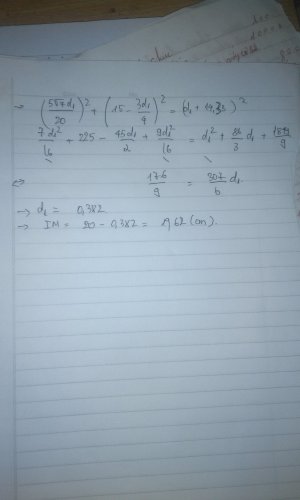 → (5√7d₁/20)² + (15 - 3d₁/4)² = (d₁ + 14,3)²
7d₁²/16 + 225 - 45d₁/2 + 9d₁²/16 = d₁² + 86/3 d₁ + 1849/9
⇔ 176/9 = 307/6 d₁
→ d₁ = 0,382
→ IM = 20 - 0,382 = 19,62 (cm).